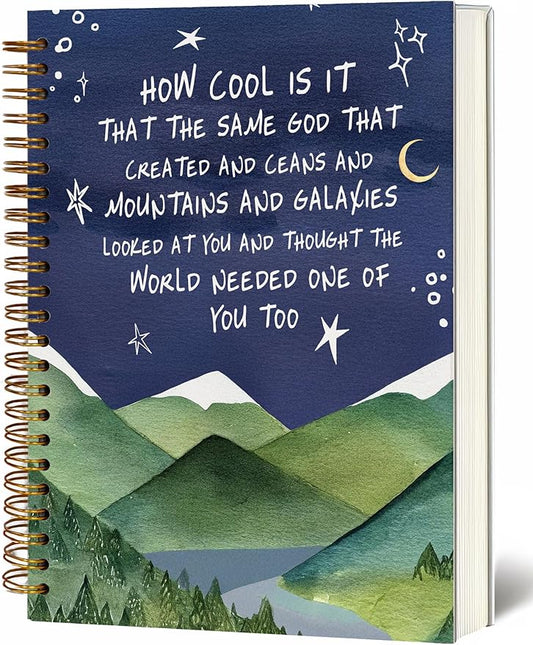 HOW COOL IS IT
THAT THE SAME GOD THAT
CREATED AND CEANS AND
MOUNTAINS AND GALAXIES
LOOKED AT YOU AND THOUGHT THE
WORLD NEEDED ONE OF
YOU TOO